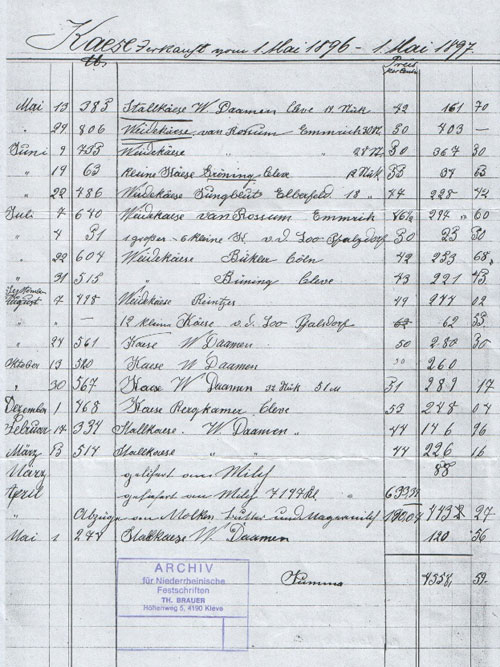 Kaese Verkauft vom 1. Mai 1896 - 1. Mai 1897.
Preis
Mai 13 385 Stallkaese W. Daamen Cleve 42 161 70
" 29 806 Weidekäese van Rossum Emmrich 50 403 —
Juni 9 735 Weidekäese " " 50 367 50
" 14 63 kleine Käese Cleve 55 34 65
" 22 486 Weidekäese Jungblut Elberfeld 18 " 44 228 42
Juli 7 640 Weidekaese van Rossum Emmrich 46½ 297 60
" 4 51 1 großer - 6 kleine K. v. d. Loo Pfalzdorf 50 25 50
" 22 604 Weidekäese Cöln 42 253 68
" 31 515 " Büning Cleve 43 221 45
August 7 498 Weidekäese Reintjes 49 244 02
" " — 12 kleine Käese v. d. Loo Pfalsdorf 62 55
" 24 561 Kaese W Daamen 50 280 50
Oktober 13 520 Kaese W Daamen 50 260
" 30 567 Kaese W Daamen 51 289 17
Dezember 1 468 Kaese Bergkamer Cleve 53 248 04
Februar 14 334 Stallkaese. W. Daamen " 44 146 96
März 13 514 Stallkaese " " 44 226 16
März geliefert an Milch 88
April geliefert an Milch
" Abzüge an Molken butter und Magermilch 27
Mai 1 274 Stallkaese W. Daamen 120 56
Summa 59.
ARCHIV
für Niederrheinische
Festschriften
TH. BRAUER
Höhenweg 5, 4190 Kleve